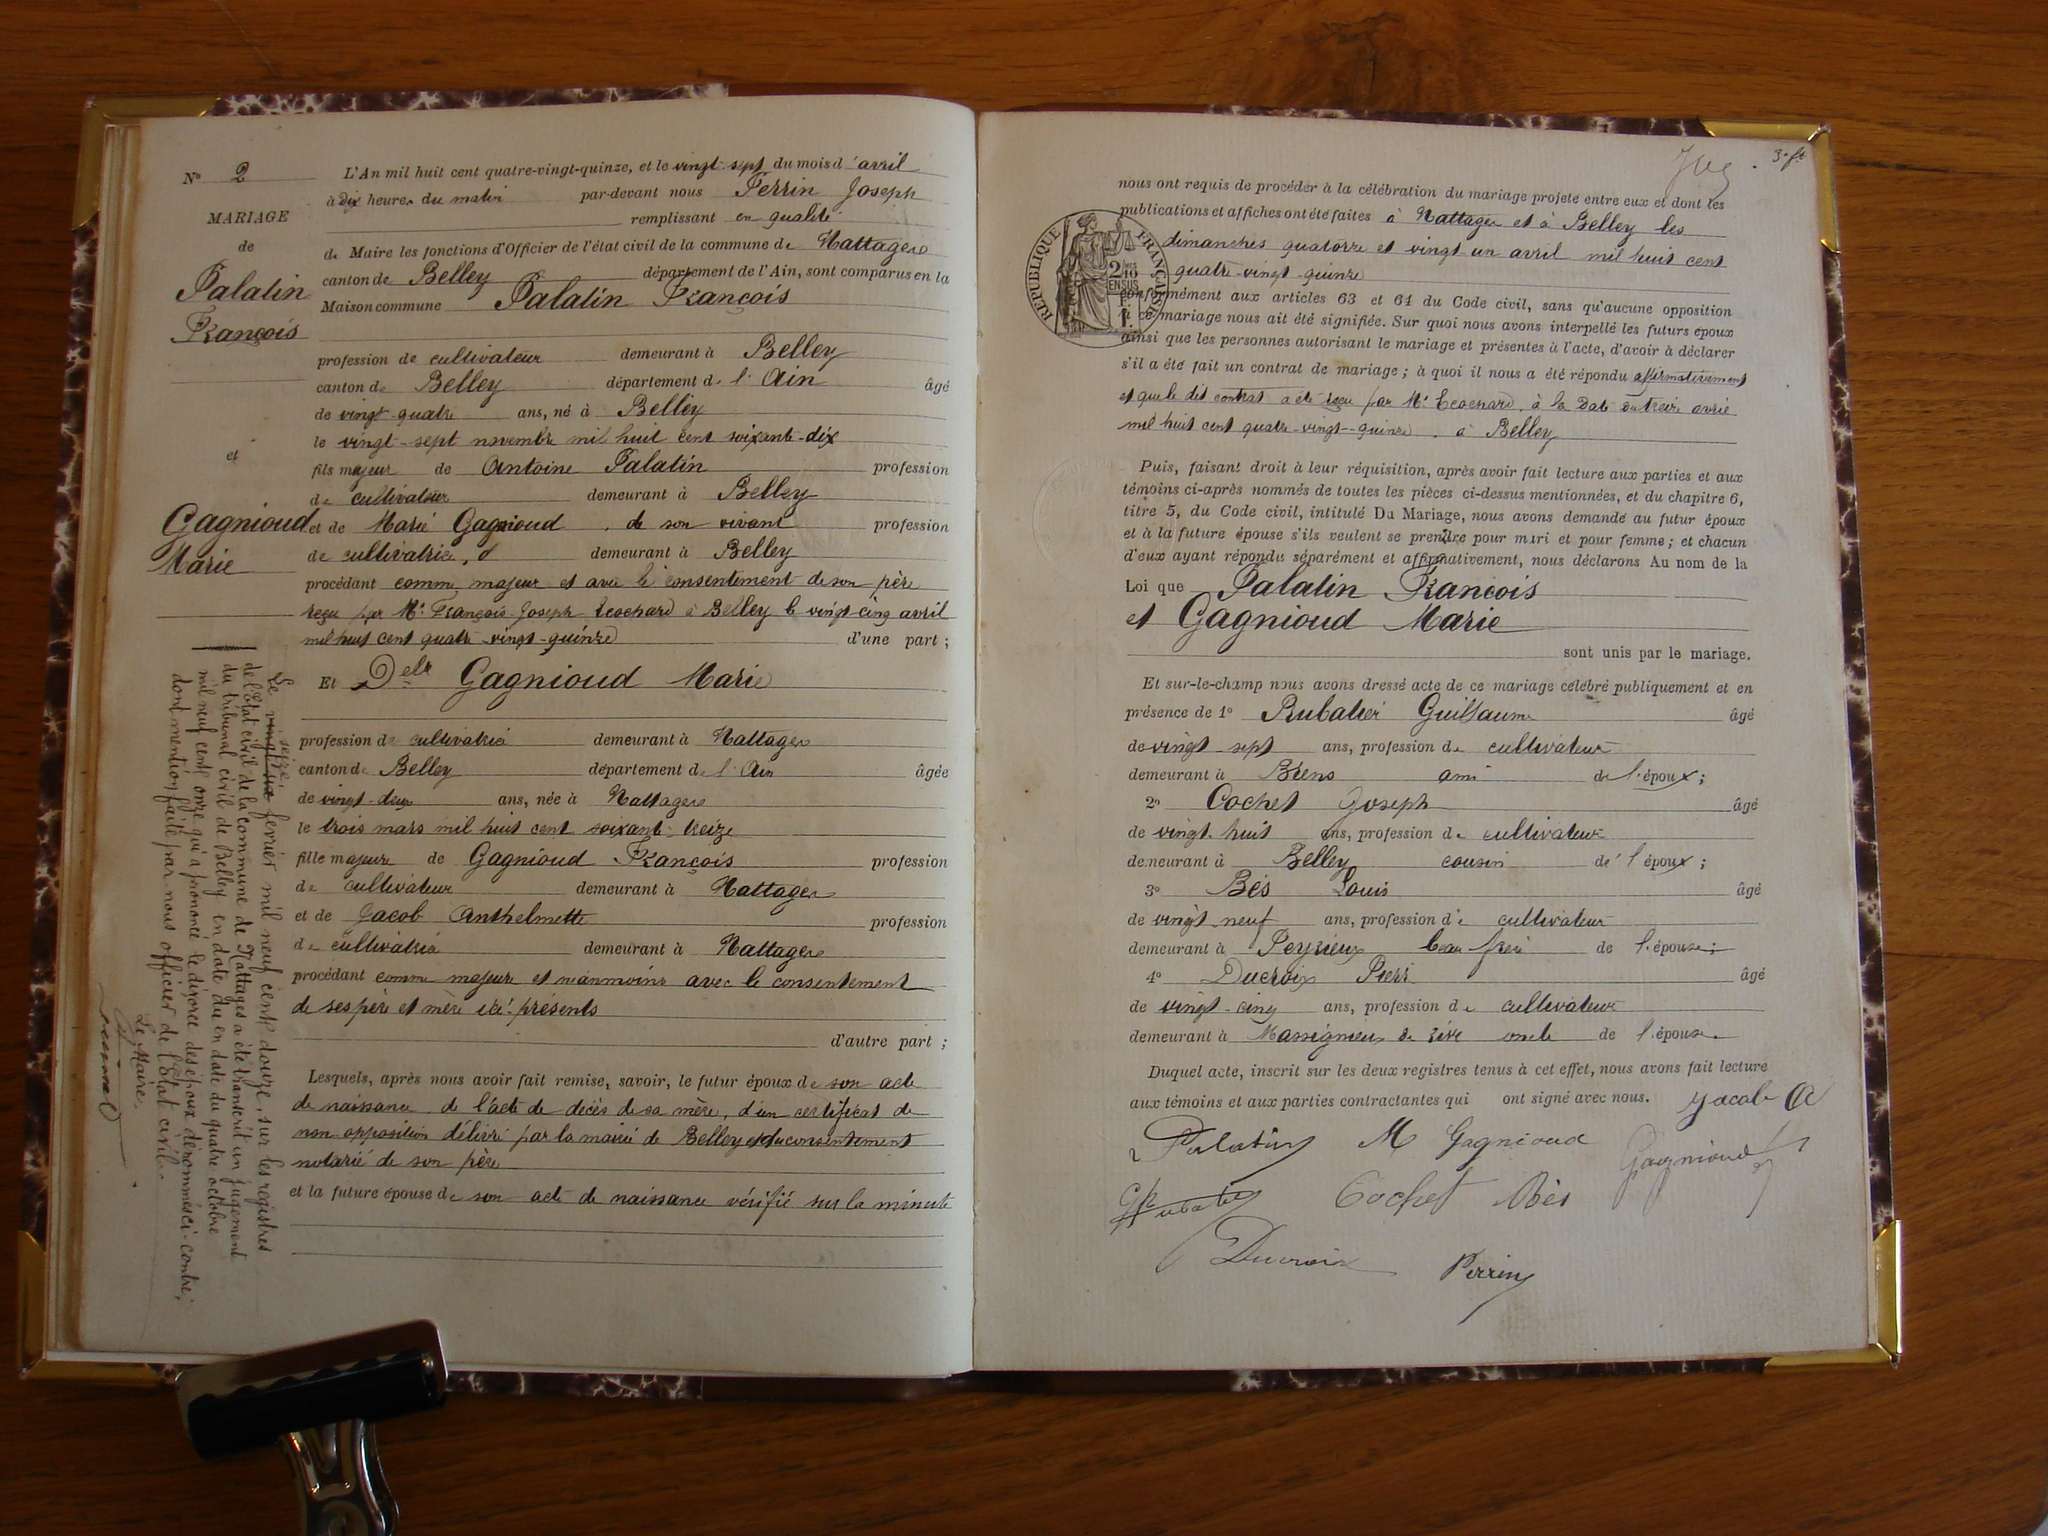 N° 2
MARIAGE
de
Palatin
François
et
Gagnioud
Marie
L'An mil huit cent quatre-vingt-quinze, et le vingt-sept du mois d'avril
à dix heures du matin par-devant nous Perrin Joseph
remplissant en qualité
de Maire les fonctions d'Officier de l'état civil de la commune de Nattages
canton de Belley département de l'Ain, sont comparus en la
Maison commune Palatin François
profession de cultivateur demeurant à Belley
canton de Belley département de l'Ain âgé
de vingt-quatre ans, né à Belley
le vingt-sept novembre mil huit cent soixante-dix
fils majeur de Antoine Palatin profession
de cultivateur demeurant à Belley
et de Marie Gagnioud, de son vivant profession
de cultivatrice, demeurant à Belley
procédant comme majeur et avec le consentement de son père
reçu par Me François-Joseph à Belley le vingt cinq avril
mil huit cent quatre-vingt-quinze d'une part ;
Et Delle Gagnioud Marie
profession de cultivatrice demeurant à Nattages
canton de Belley département de l'Ain âgée
de vingt-deux ans, née à Nattages
le trois mars mil huit cent soixante-treize
fille majeure de Gagnioud François profession
de cultivateur demeurant à Nattages
et de Jacob Anthelmette profession
de cultivatrice demeurant à Nattages
procédant comme majeure et néanmoins avec le consentement
de ses père et mère ici présents
d'autre part ;
Lesquels, après nous avoir fait remise, savoir, le futur époux de son acte
de naissance, de l'acte de décès de sa mère, d'un certificat de
non opposition délivré par la mairie de Belley et du consentement
notarié de son père
et la future épouse de son acte de naissance vérifié sur la minute
Le vingt-six seize fevrier mil neuf cent douze, sur les registres
de l'Etat civil de la commune de Nattages a été transcrit un jugement
du tribunal civil de Belley en date du en date du quatre octobre
mil neuf cent onze qui a prononcé le divorce des époux dénommés ci-contre ;
dont mention faite par nous officier de l'Etat civil.
Le Maire,
3e ft
nous ont requis de procéder à la célébration du mariage projeté entre eux et dont les
publications et affiches ont été faites à Nattages et à Belley les
dimanches quatorze et vingt un avril mil huit cent
quatre-vingt-quinze
RÉPUBLIQUE FRANÇAISE
2/10 EN SUS
1 F.
conformément aux articles 63 et 64 du Code civil, sans qu'aucune opposition
à ce mariage nous ait été signifiée. Sur quoi nous avons interpellé les futurs époux
ainsi que les personnes autorisant le mariage et présentes à l'acte, d'avoir à déclarer
s'il a été fait un contrat de mariage ; à quoi il nous a été répondu affirmativement
et que le dit contrat a été reçu par Me à la date du treize avril
mil huit cent quatre-vingt-quinze, à Belley
Puis, faisant droit à leur réquisition, après avoir fait lecture aux parties et aux
témoins ci-après nommés de toutes les pièces ci-dessus mentionnées, et du chapitre 6,
titre 5, du Code civil, intitulé Du Mariage, nous avons demandé au futur époux
et à la future épouse s'ils veulent se prendre pour mari et pour femme ; et chacun
d'eux ayant répondu séparément et affirmativement, nous déclarons Au nom de la
Loi que Palatin François
et Gagnioud Marie
sont unis par le mariage.
Et sur-le-champ nous avons dressé acte de ce mariage célébré publiquement et en
présence de 1° Rubatier Guillaume âgé
de vingt-sept ans, profession de cultivateur
demeurant à Brens ami de l'époux ;
2° Cochet Joseph âgé
de vingt-huit ans, profession de cultivateur
demeurant à Belley cousin de l'époux ;
3° Bès Louis âgé
de vingt-neuf ans, profession de cultivateur
demeurant à Peyrieux beau frère de l'épouse ;
4° Ducroix Pierre âgé
de vingt-cinq ans, profession de cultivateur
demeurant à Massignieu de rive oncle de l'épouse
Duquel acte, inscrit sur les deux registres tenus à cet effet, nous avons fait lecture
aux témoins et aux parties contractantes qui ont signé avec nous. Jacob A
Palatin M Gagnioud Gagnioud
Rubatier Cochet Bès
Ducroix Perrin